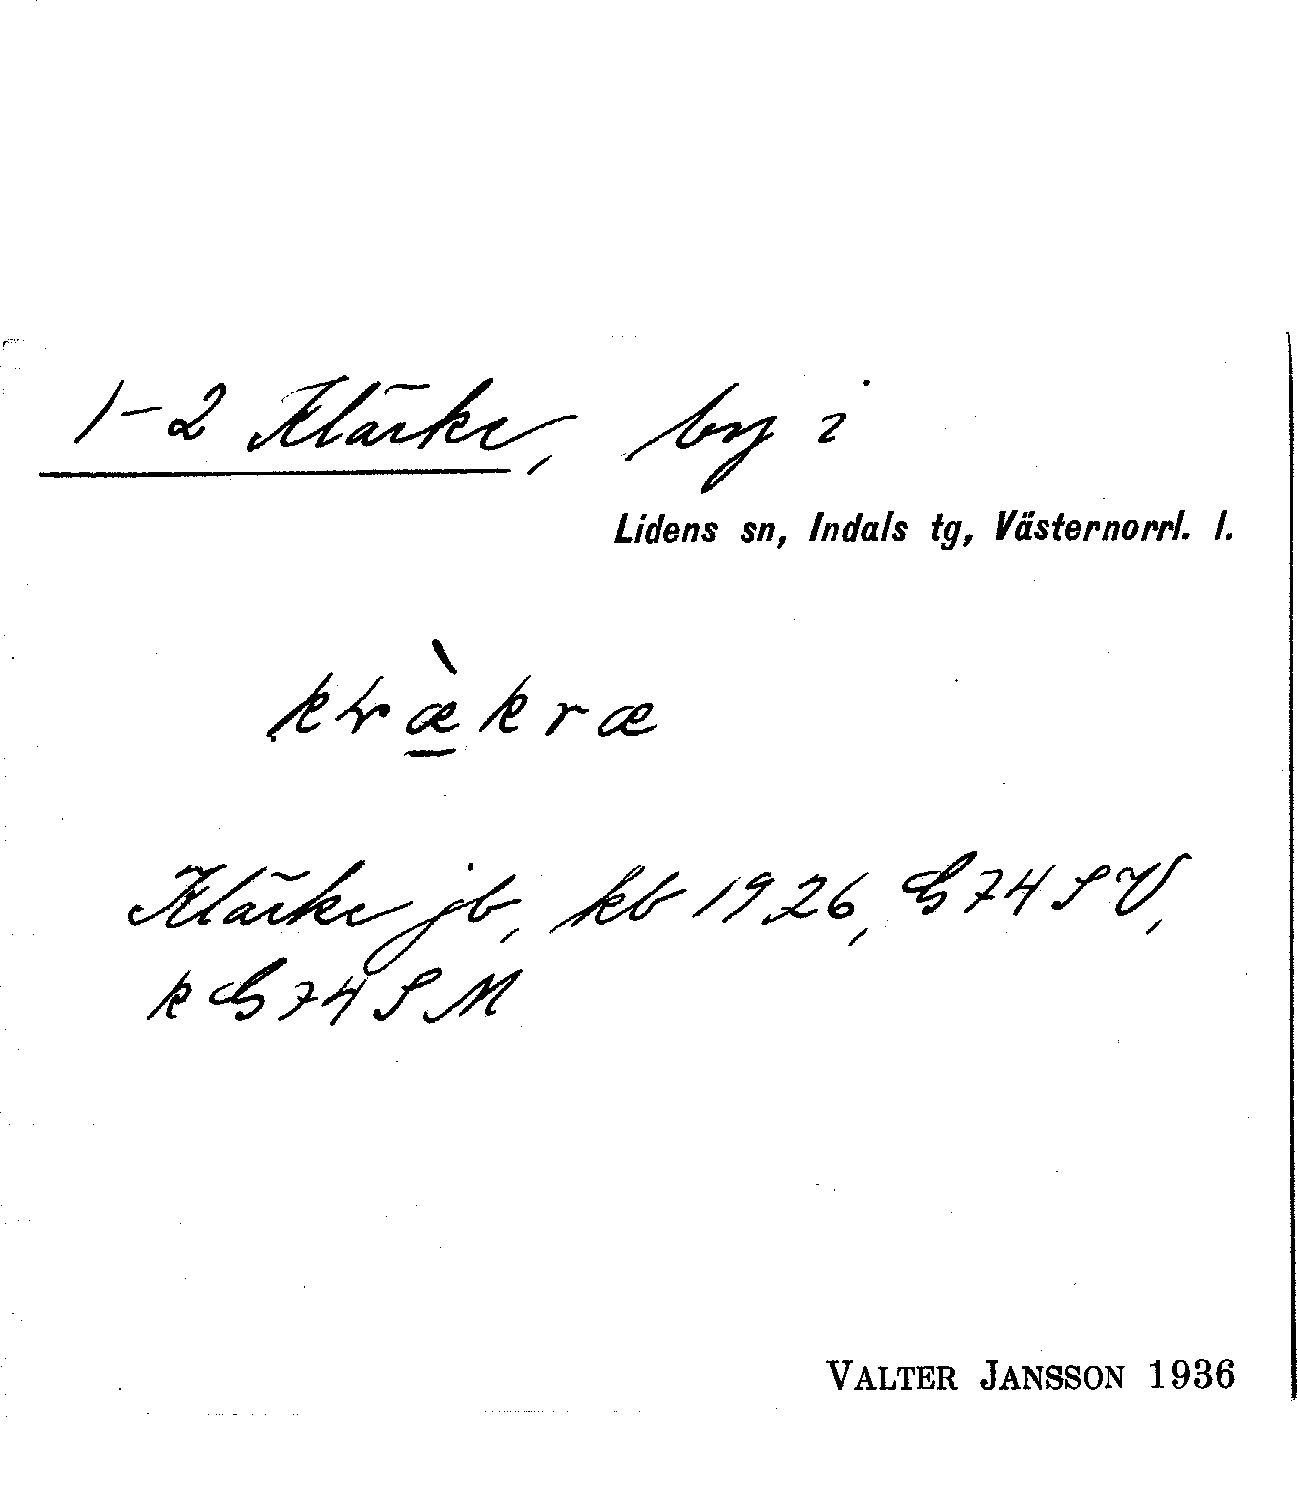 1-2 Klärke, by i
Lidens sn, Indals tg, Västernorrl. l.
Klärke jb, kb 1926, G74SV,
k G74SM
VALTER JANSSON 1936